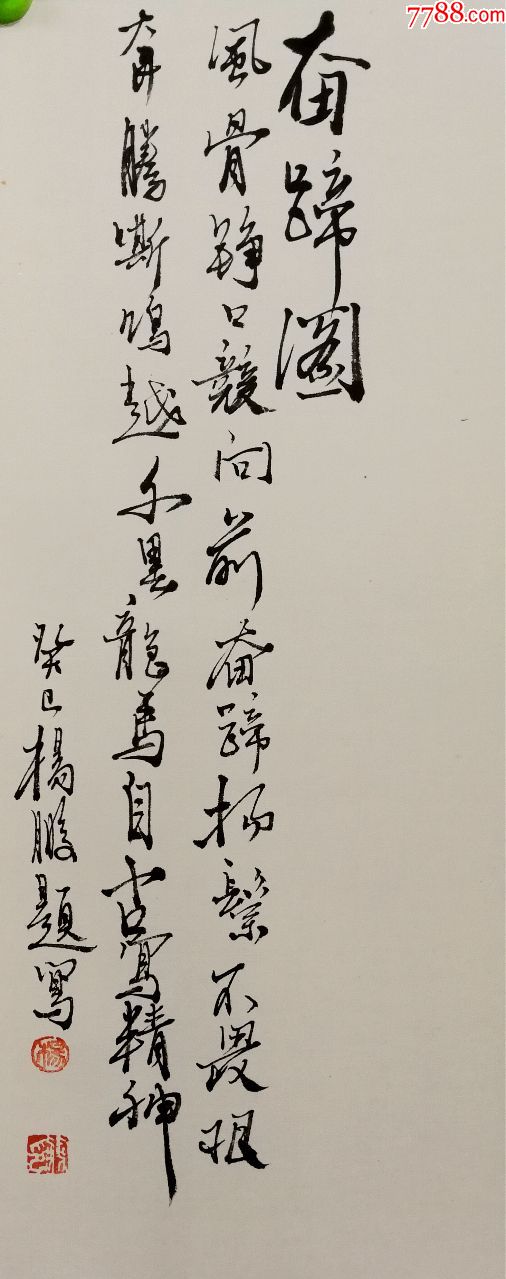 7788.com
奋蹄圖
風骨錚競向前奋蹄扬鬃不畏艰
奔騰嘶鳴越千里龍馬自古寫精神
癸巳楊鵬題寫